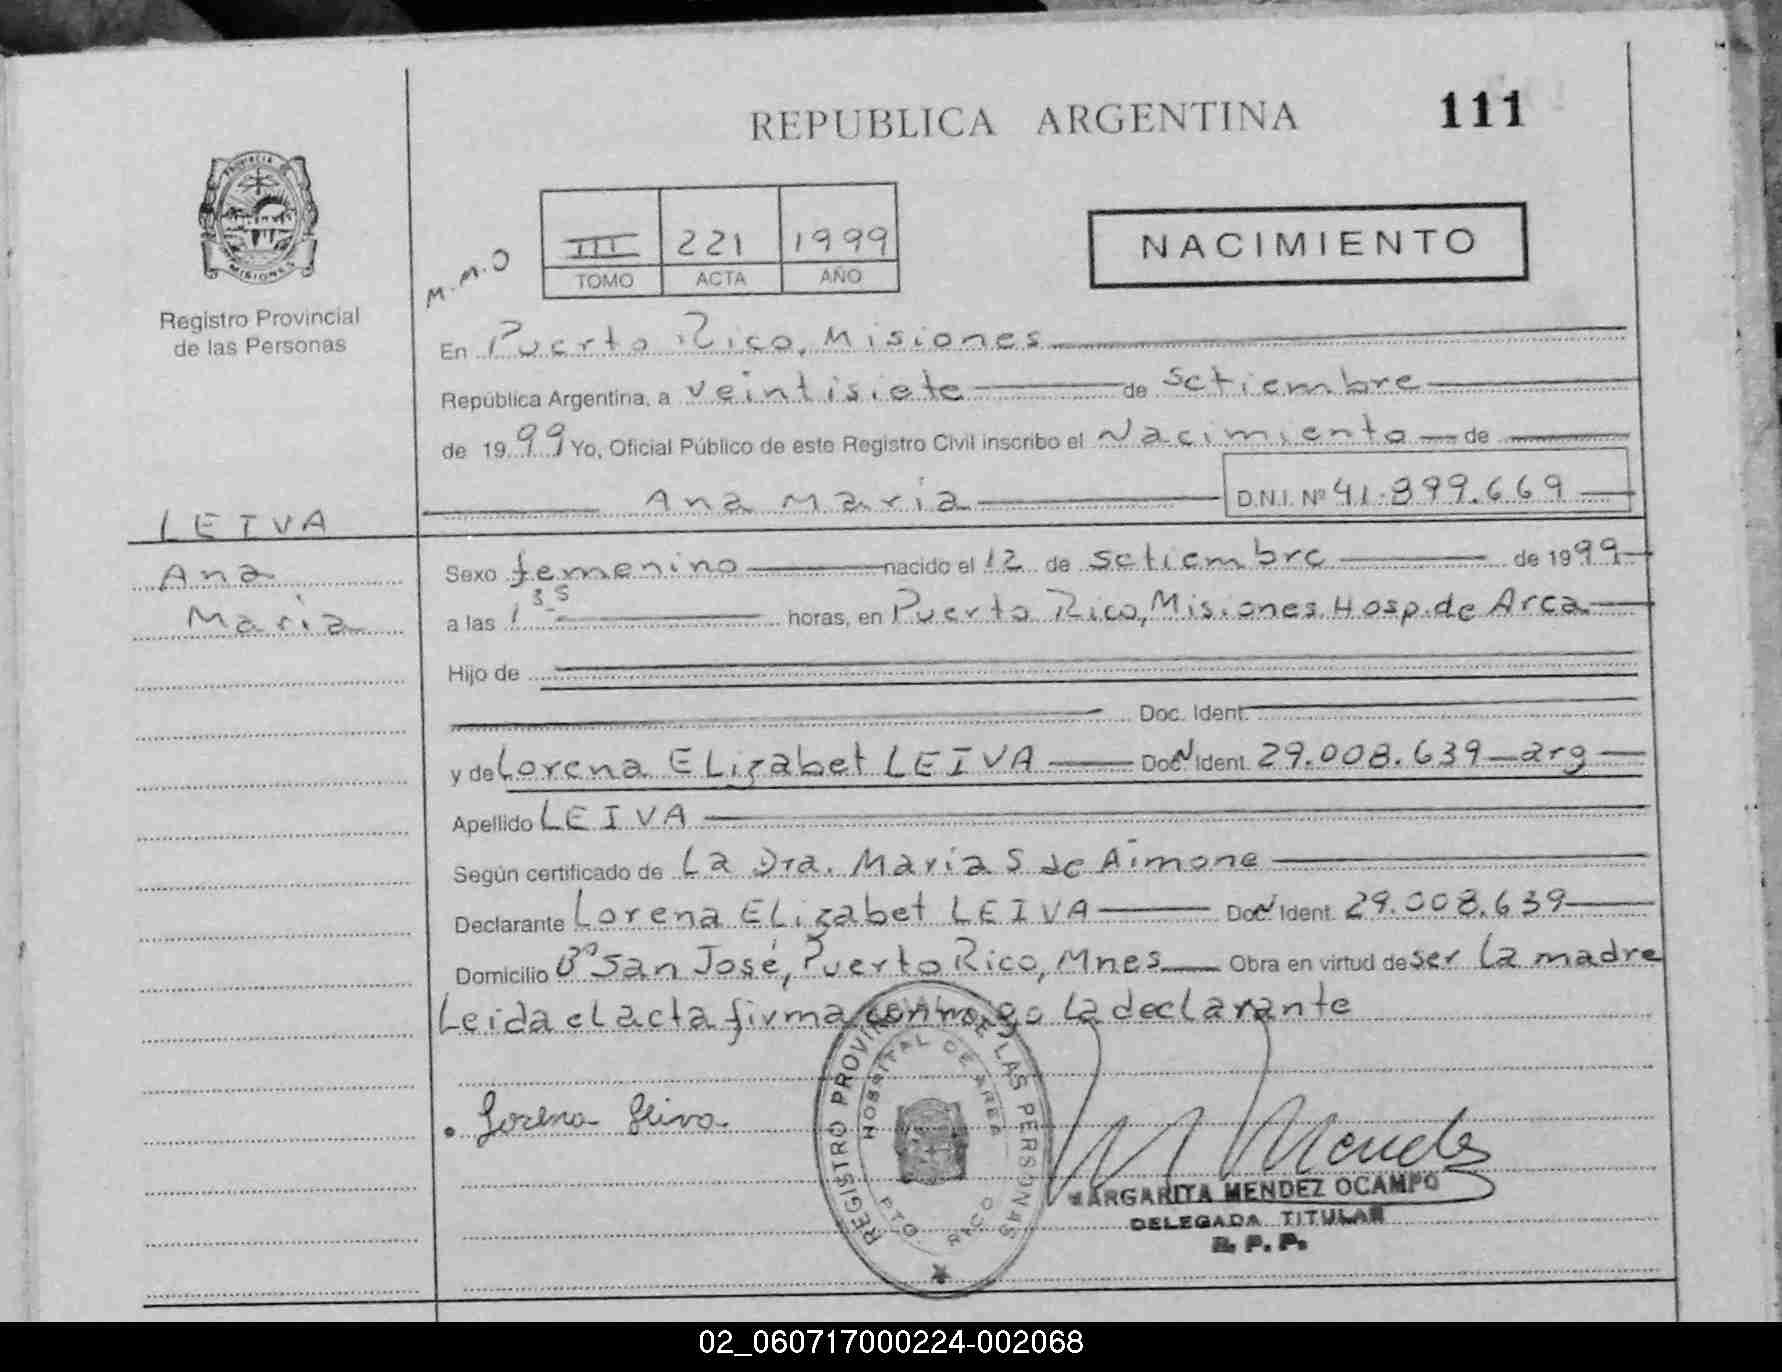 REPUBLICA ARGENTINA
111
PROVINCIA DE
MISIONES
Registro Provincial
de las Personas
M.M.O
III 221 1999
TOMO ACTA AÑO
NACIMIENTO
En Puerto Rico, Misiones
República Argentina, a veintisiete de Setiembre
de 1999 Yo, Oficial Público de este Registro Civil inscribo el Nacimiento de
Ana Maria D.N.I. Nº 41.899.669
LEIVA
Ana
Maria
Sexo femenino nacido el 12 de Setiembre de 1999
a las 1 35 horas, en Puerto Rico, Misiones. Hosp. de Area
Hijo de
Doc. Ident.
y de Lorena ELizabet LEIVA Doc. Ident. 29.008.639 arg
Apellido LEIVA
Según certificado de La Dra. Maria S de Aimone
Declarante Lorena ELizabet LEIVA Doc. Ident. 29.008.639
Domicilio Bº San José, Puerto Rico, Mnes Obra en virtud de ser La madre
Leida el acta firma conmigo La declarante
Lorena Leiva
REGISTRO PROVINCIAL DE LAS PERSONAS
HOSPITAL DE AREA
PTO. RICO
M Mendez
MARGARITA MENDEZ OCAMPO
DELEGADA TITULAR
R. P. P.
02_060717000224-002068